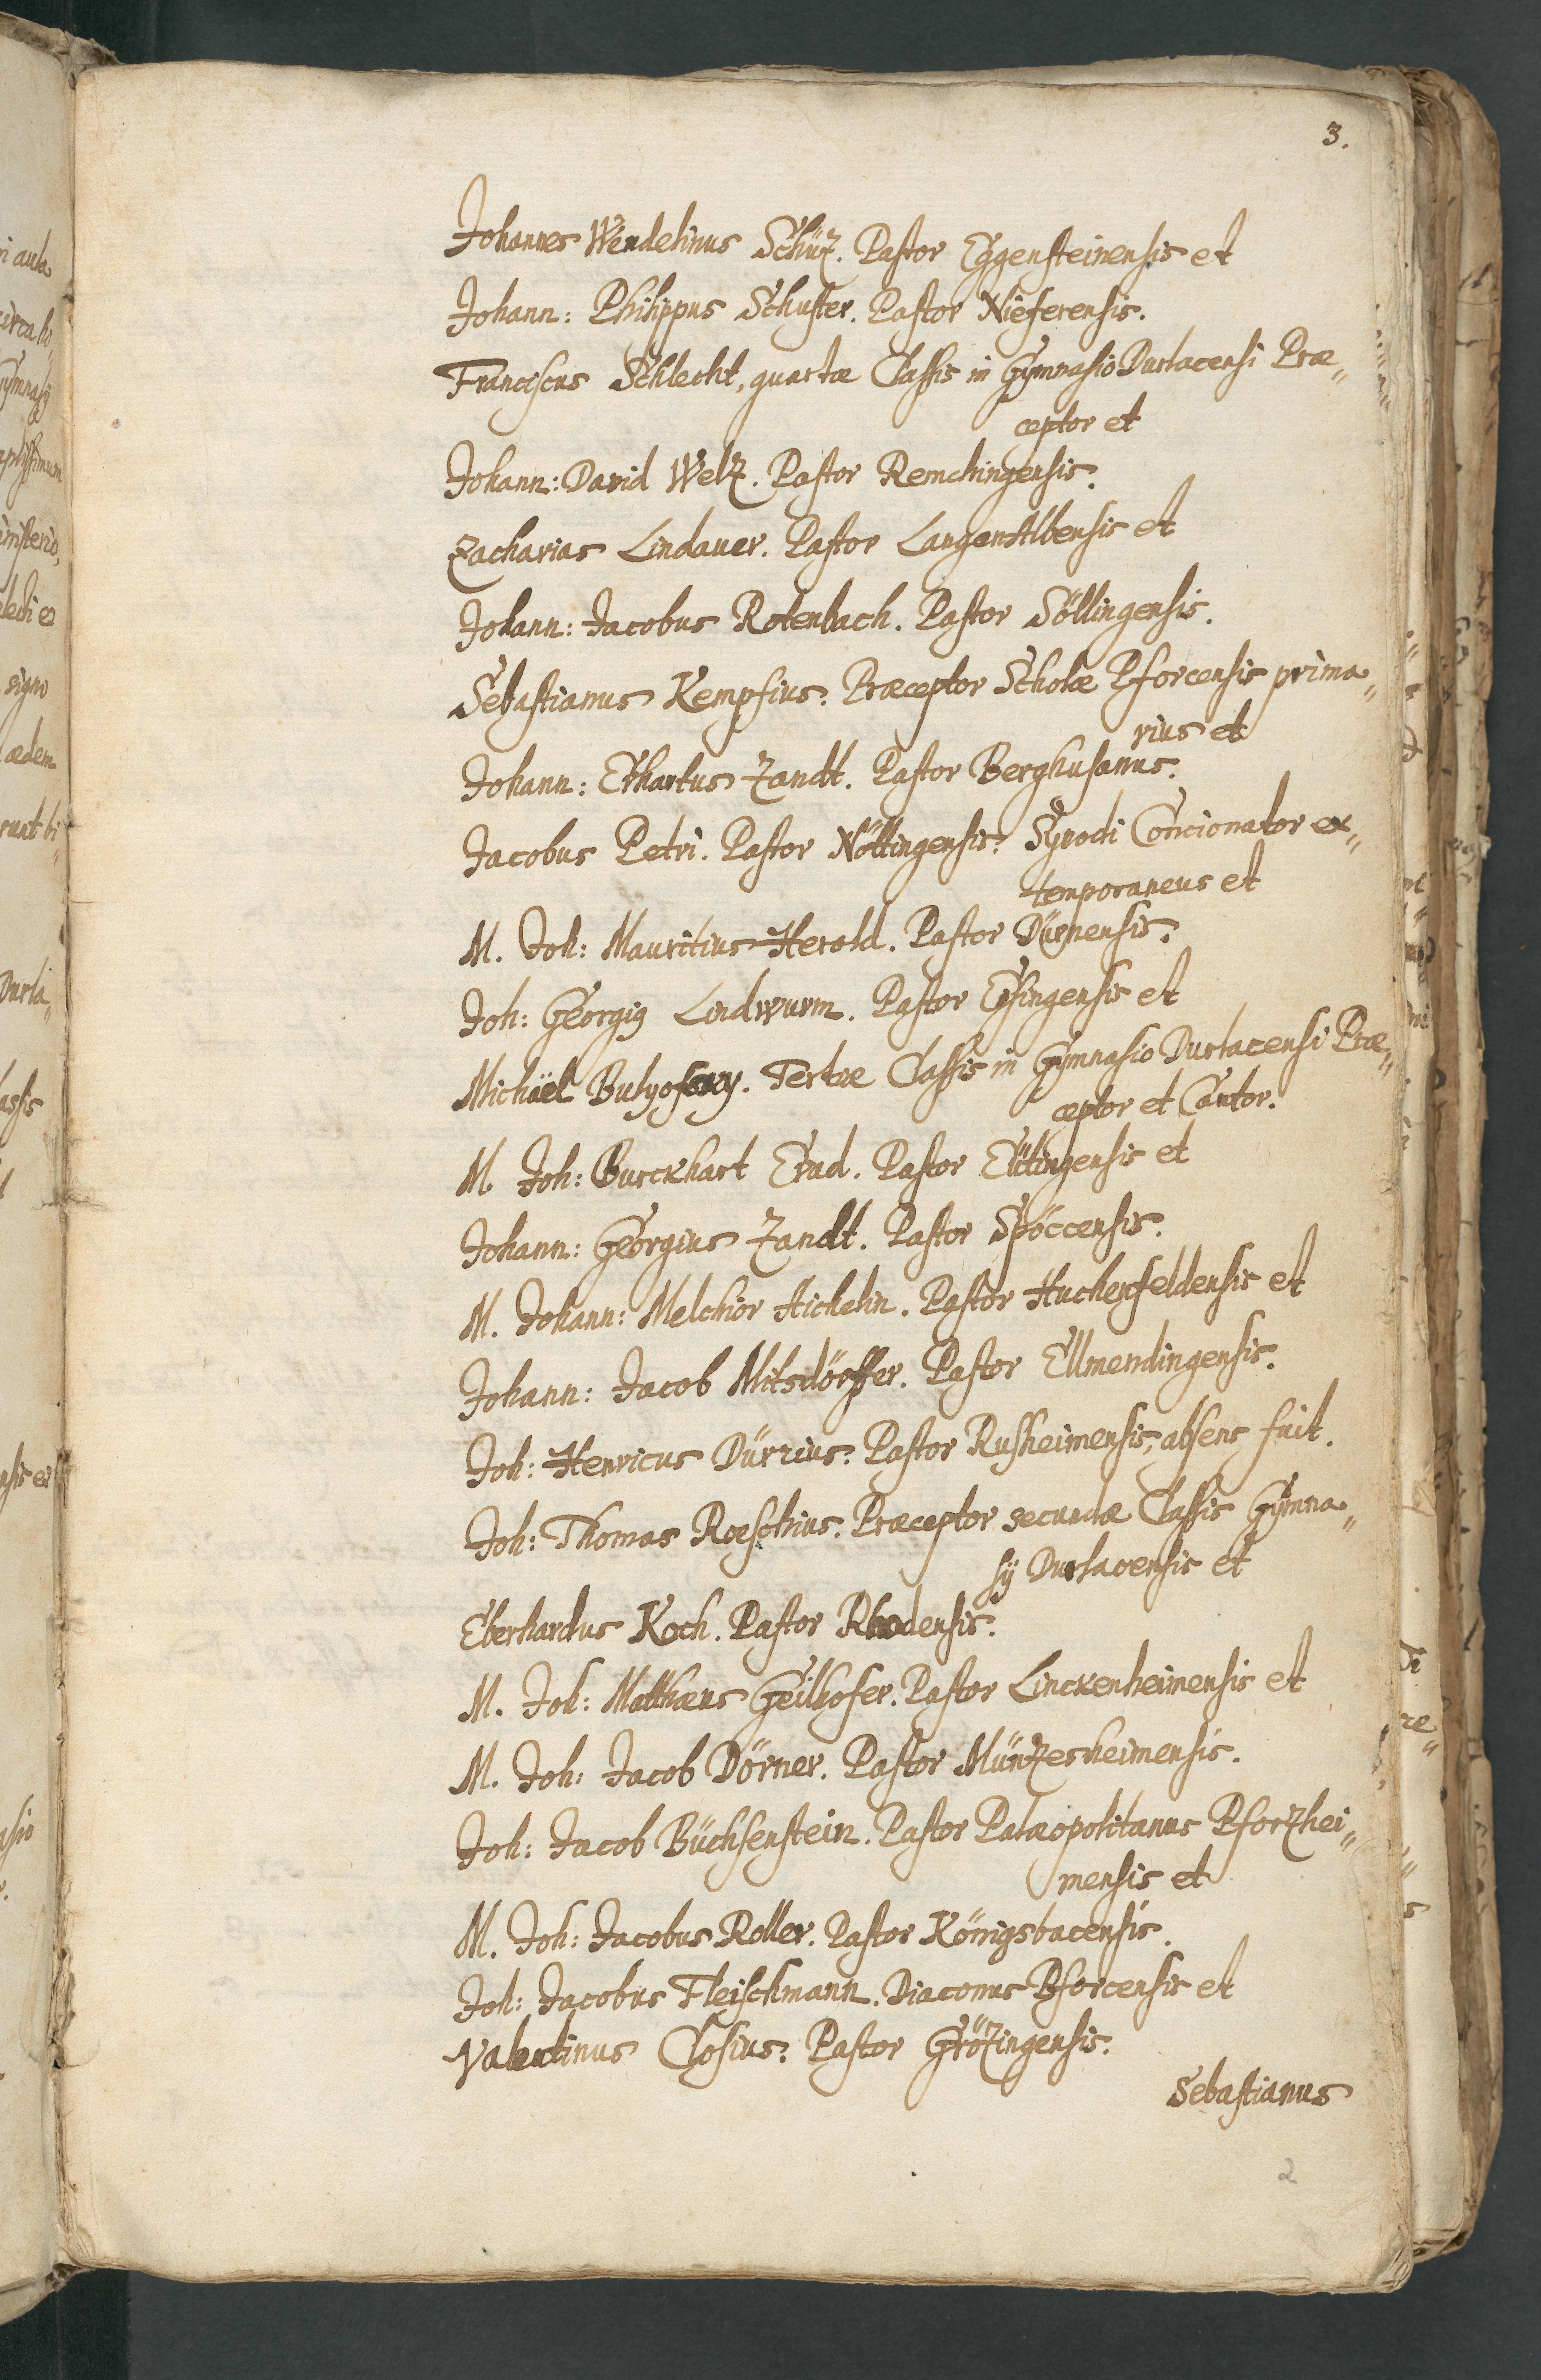 3.
Johannes Wendelinus Schüz. Pastor Eggensteinensis et
Johann: Philippus Schuster. Pastor Nieferensis.
Franciscus Schlecht, quartæ Classis in Gymnasio Durlacensi Præ„
ceptor et
Johann: David Welz. Pastor Remchingensis.
Zacharias Lindauer. Pastor LangenAlbensis et
Johann: Jacobus Rotenbach. Pastor Söllingensis.
Sebastianus Kempfius. Præceptor Scholæ Pforcensis prima„
rius et
Johann: Erhartus Zandt. Pastor Berghusanus.
Jacobus Petri. Pastor Nöttingensis. Synodi Concionator ex„
temporaneus et
M. Joh: Mauritius Herold. Pastor Dürnensis.
Joh: Georgig Lindwurm. Pastor Ersingensis et
Michäel Bulyofsky. Tertiæ Classis in Gymnasio Durlacensi Præ„
ceptor et Cantor.
M. Joh: Burckhart Erad. Pastor Eütingensis et
Johann: Georgius Zandt. Pastor Spöccensis.
M. Johann: Melchior Aichelin. Pastor Huchenfeldensis et
Johann: Jacob Mitsdörffer. Pastor Ellmendingensis.
Joh: Henricus Dürrius. Pastor Rusheimensis, absens fuit.
Joh: Thomas Roeschius. Præceptor secundæ Classis Gymna„
sÿ Durlacensis et
Eberhardus Koch. Pastor Rhodensis.
M. Joh: Matthæus Geilhofer. Pastor Linckenheimensis et
M. Joh: Jacob Dörner. Pastor Münzesheimensis.
Joh: Jacob Büchsenstein. Pastor Palæopolitanus Pforzhei„
mensis et
M. Joh: Jacobus Roller. Pastor Königsbacensis.
Joh: Jacobus Fleischmann. Diaconus Pforcensis et
Valentinus Closius. Pastor Grözingensis.
Sebastianus
2